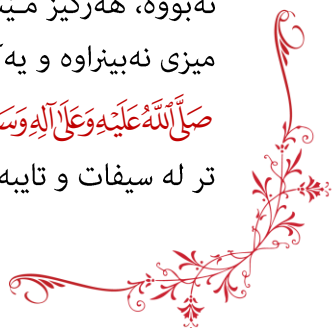 نەبووە، هەرگیز
میزی نەبینراوە و
صَلَّى ٱللَّهُ عَلَيْهِ وَعَلَىٰ آلِهِ
تر لە سیفات و